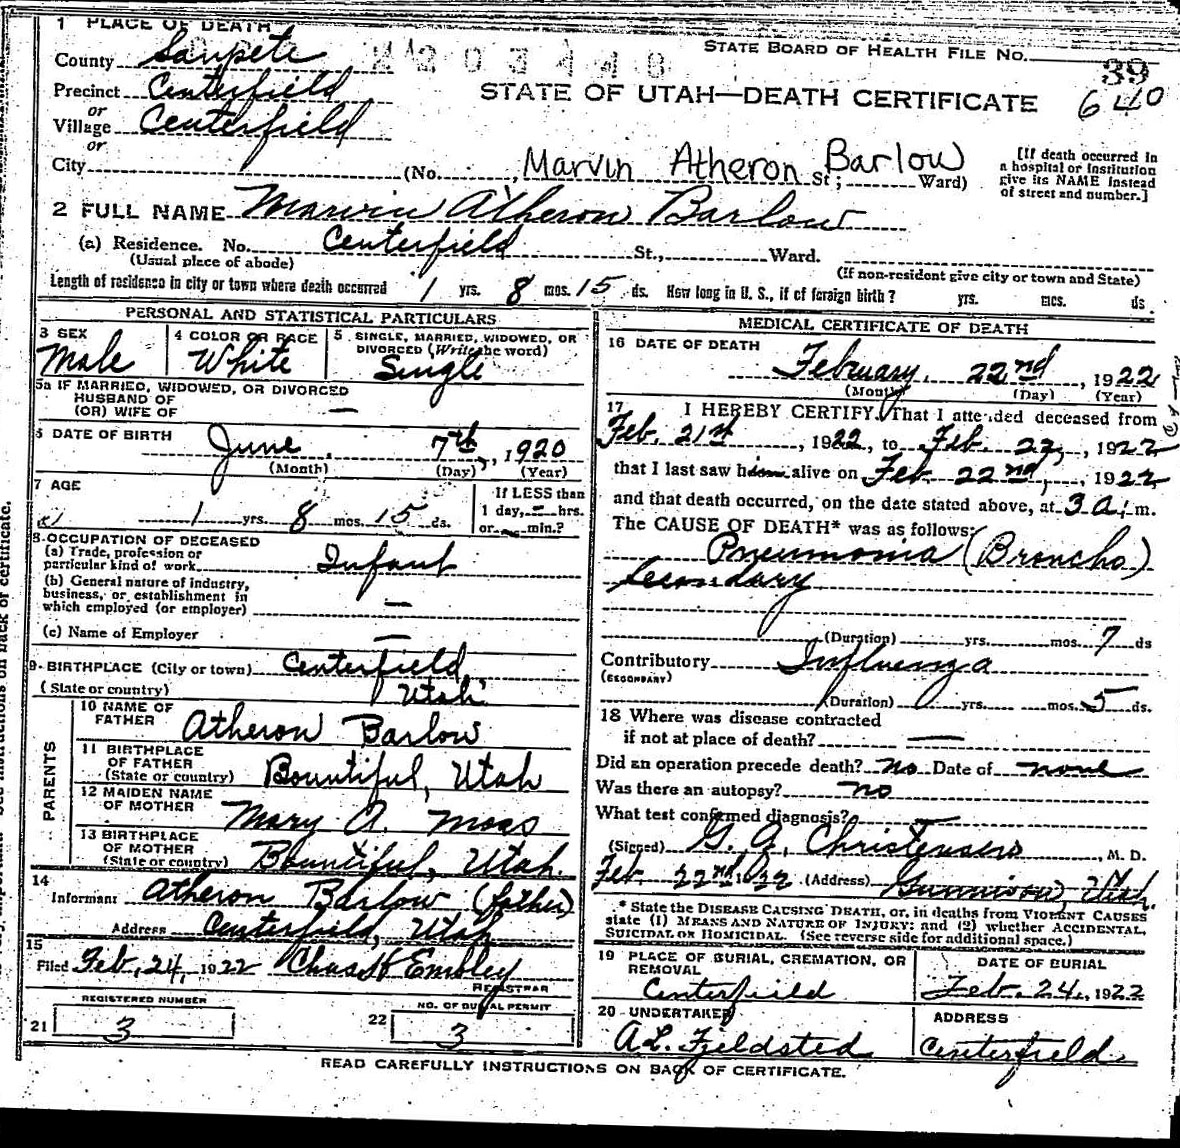 1 PLACE OF DEATH
STATE BOARD OF HEALTH FILE No.
39
640
County Sanpete
Precinct Centerfield
STATE OF UTAH—DEATH CERTIFICATE
or
Village Centerfield
or
City (No. Marvin Atheron Barlow St; Ward)
[If death occurred in a hospital or institution give its NAME instead of street and number.]
2 FULL NAME Marvin Atheron Barlow
(a) Residence. No. Centerfield St., Ward.
(Usual place of abode) (If non-resident give city or town and State)
Length of residence in city or town where death occurred 1 yrs. 8 mos. 15 ds. How long in U. S., if of foreign birth? yrs. mos. ds.
PERSONAL AND STATISTICAL PARTICULARS
3 SEX
Male
4 COLOR OR RACE
White
5 SINGLE, MARRIED, WIDOWED, OR
DIVORCED (Write the word)
Single
5a IF MARRIED, WIDOWED, OR DIVORCED
HUSBAND OF
(OR) WIFE OF —
6 DATE OF BIRTH
June 7th, 1920
(Month) (Day) (Year)
7 AGE
1 yrs. 8 mos. 15 ds.
If LESS than
1 day, hrs.
or min.?
8 OCCUPATION OF DECEASED
(a) Trade, profession or
particular kind of work Infant
(b) General nature of industry,
business, or establishment in
which employed (or employer) —
(c) Name of Employer —
9 BIRTHPLACE (City or town) Centerfield
(State or country) Utah
PARENTS
10 NAME OF
FATHER Atheron Barlow
11 BIRTHPLACE
OF FATHER
(State or country) Bountiful, Utah
12 MAIDEN NAME
OF MOTHER Mary A. Moss
13 BIRTHPLACE
OF MOTHER
(State or country) Bountiful, Utah.
14
Informant Atheron Barlow (father)
Address Centerfield, Utah
15
Filed Feb, 24, 1922 Chas H Embley
REGISTRAR
REGISTERED NUMBER
21 3
NO. OF BURIAL PERMIT
22 3
MEDICAL CERTIFICATE OF DEATH
16 DATE OF DEATH
February, 22nd, 1922
(Month) (Day) (Year)
17 I HEREBY CERTIFY, That I attended deceased from
Feb. 21st, 1922, to Feb. 22, 1922
that I last saw him alive on Feb. 22nd, 1922,
and that death occurred, on the date stated above, at 3 a. m.
The CAUSE OF DEATH* was as follows:
Pneumonia (Broncho)
Secondary
(Duration) yrs. mos. 7 ds
Contributory Influenza
(SECONDARY)
(Duration) yrs. mos. 5 ds.
18 Where was disease contracted
if not at place of death? —
Did an operation precede death? no Date of none
Was there an autopsy? no
What test confirmed diagnosis? —
(Signed) G. A. Christensen, M. D.
Feb. 22nd 1922 (Address) Gunnison, Utah.
* State the DISEASE CAUSING DEATH, or, in deaths from VIOLENT CAUSES
state (1) MEANS AND NATURE OF INJURY; and (2) whether ACCIDENTAL,
SUICIDAL OR HOMICIDAL. (See reverse side for additional space.)
19 PLACE OF BURIAL, CREMATION, OR
REMOVAL
Centerfield
DATE OF BURIAL
Feb. 24., 1922
20 UNDERTAKER
A. L. Fjeldsted
ADDRESS
Centerfield.
READ CAREFULLY INSTRUCTIONS ON BACK OF CERTIFICATE.